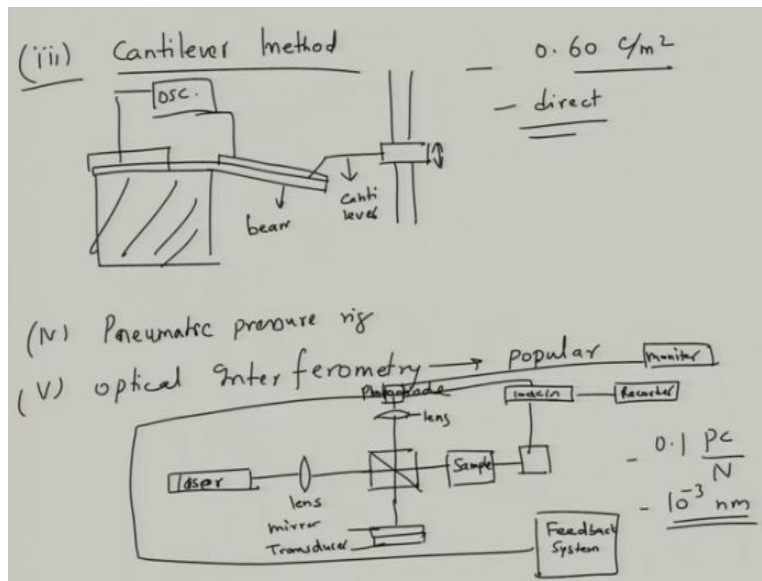 (iii) Cantilever Method
- 0.60 C/m²
- direct
OSC.
beam
Canti
lever
(IV) Pneumatic pressure rig
(V) optical Interferometry → popular
moniter
Photodiode
lens
Recorder
laser
lens
Sample
- 0.1 pC/N
- 10⁻³ nm
mirror
Transducer
Feedback
System